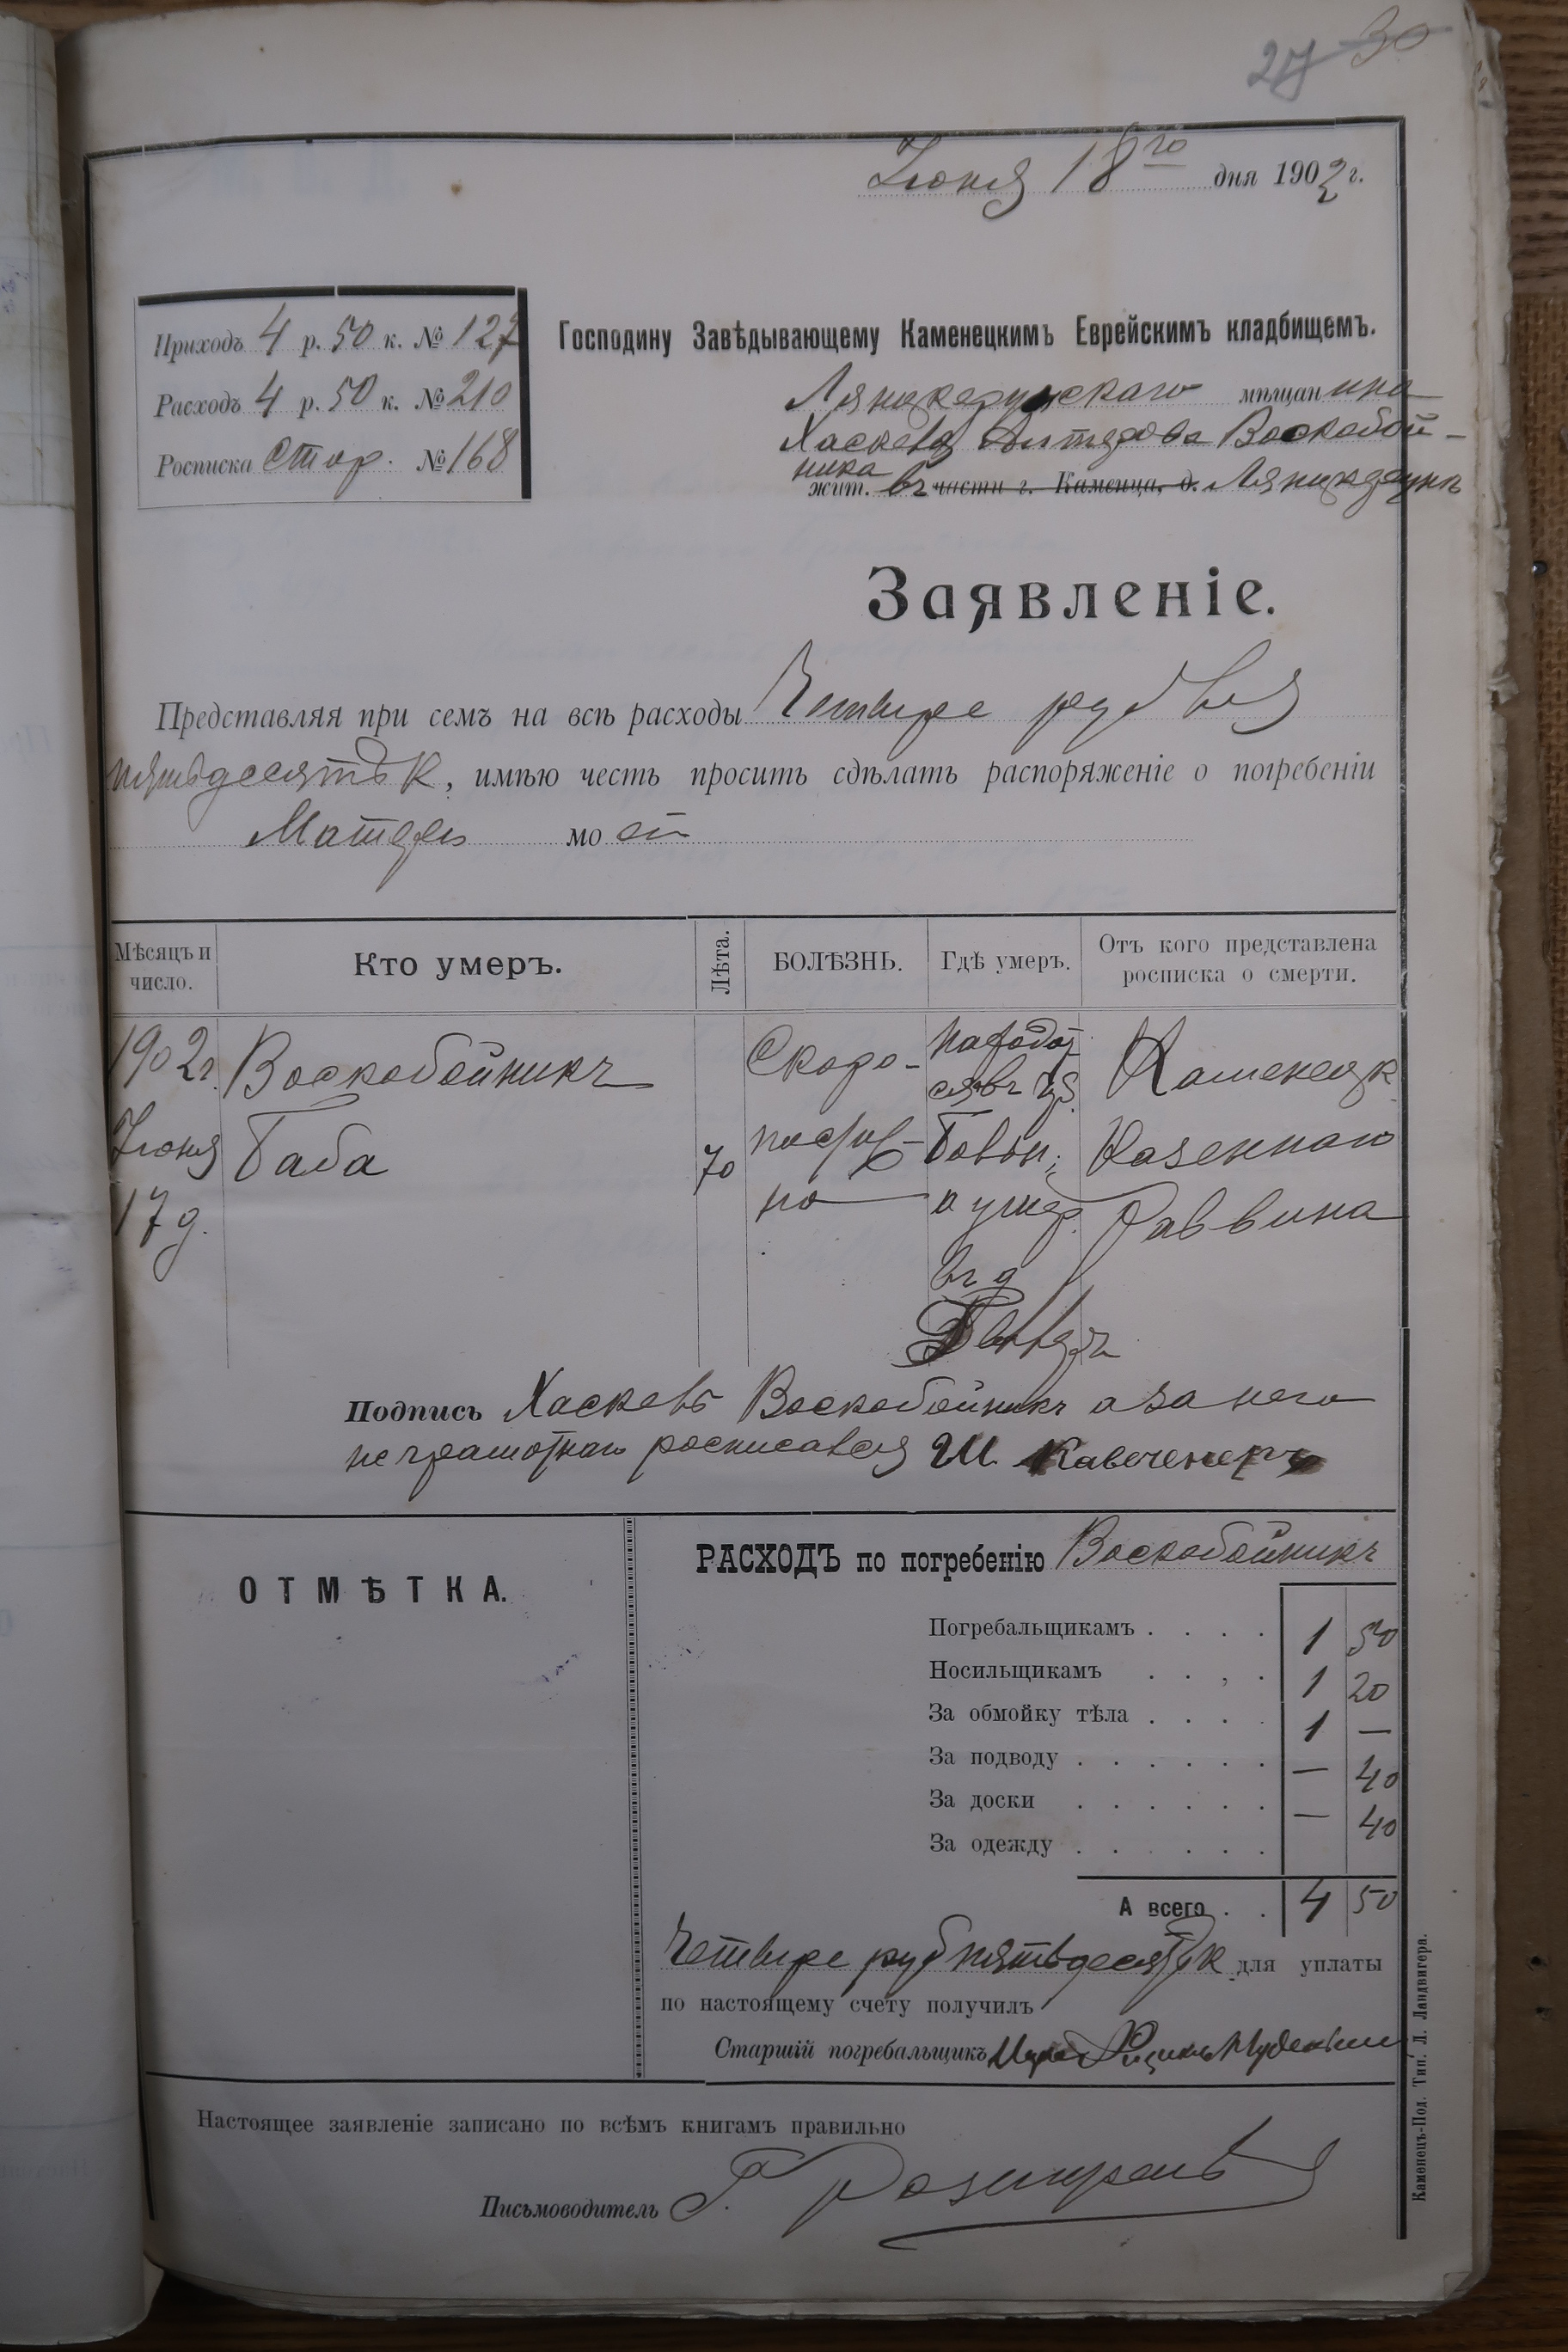 27 30
Іюня 18го дня 1902 г.
Приходъ 4 р. 50 к. № 127
Расходъ 4 р. 50 к. № 210
Росписка стар. № 168
Господину Завѣдывающему Каменецкимъ Еврейскимъ кладбищемъ.
Лянцкорунскаго мѣщанина
Хаскеля Воскобой-
ника
жит. въ части г. Каменца, д. Лянцкорунъ
Заявленіе.
Представляя при семъ на всѣ расходы Четыре рубля
пятьдесятъ к, имѣю честь просить сдѣлать распоряженіе о погребеніи
Матери моей
Мѣсяцъ и число.
Кто умеръ.
Лѣта.
БОЛѢЗНЬ.
Гдѣ умеръ.
Отъ кого представлена росписка о смерти.
1902г. Іюня 17 д.
Воскобойникъ Баба
70
Скоро-постиж-но
и умер. въ д
Каменецк Казеннаго Раввина
Подпись Хаскель Воскобойникъ а за него
неграмотнаго росписался Ш.
ОТМѢТКА.
РАСХОДЪ по погребенію Воскобойникъ
Погребальщикамъ . . . . 1 50
Носильщикамъ . . , . 1 20
За обмойку тѣла . . . . 1 —
За подводу . . . . . . — 40
За доски . . . . . . — 40
За одежду . . . . . .
А всего . . 4 50
Четыре руб пятьдесятъ к для уплаты
по настоящему счету получилъ
Старшій погребальщикъ
Настоящее заявленіе записано по всѣмъ книгамъ правильно
Письмоводитель Г.
Каменецъ-Под. Тип. Л. Ландвигера.